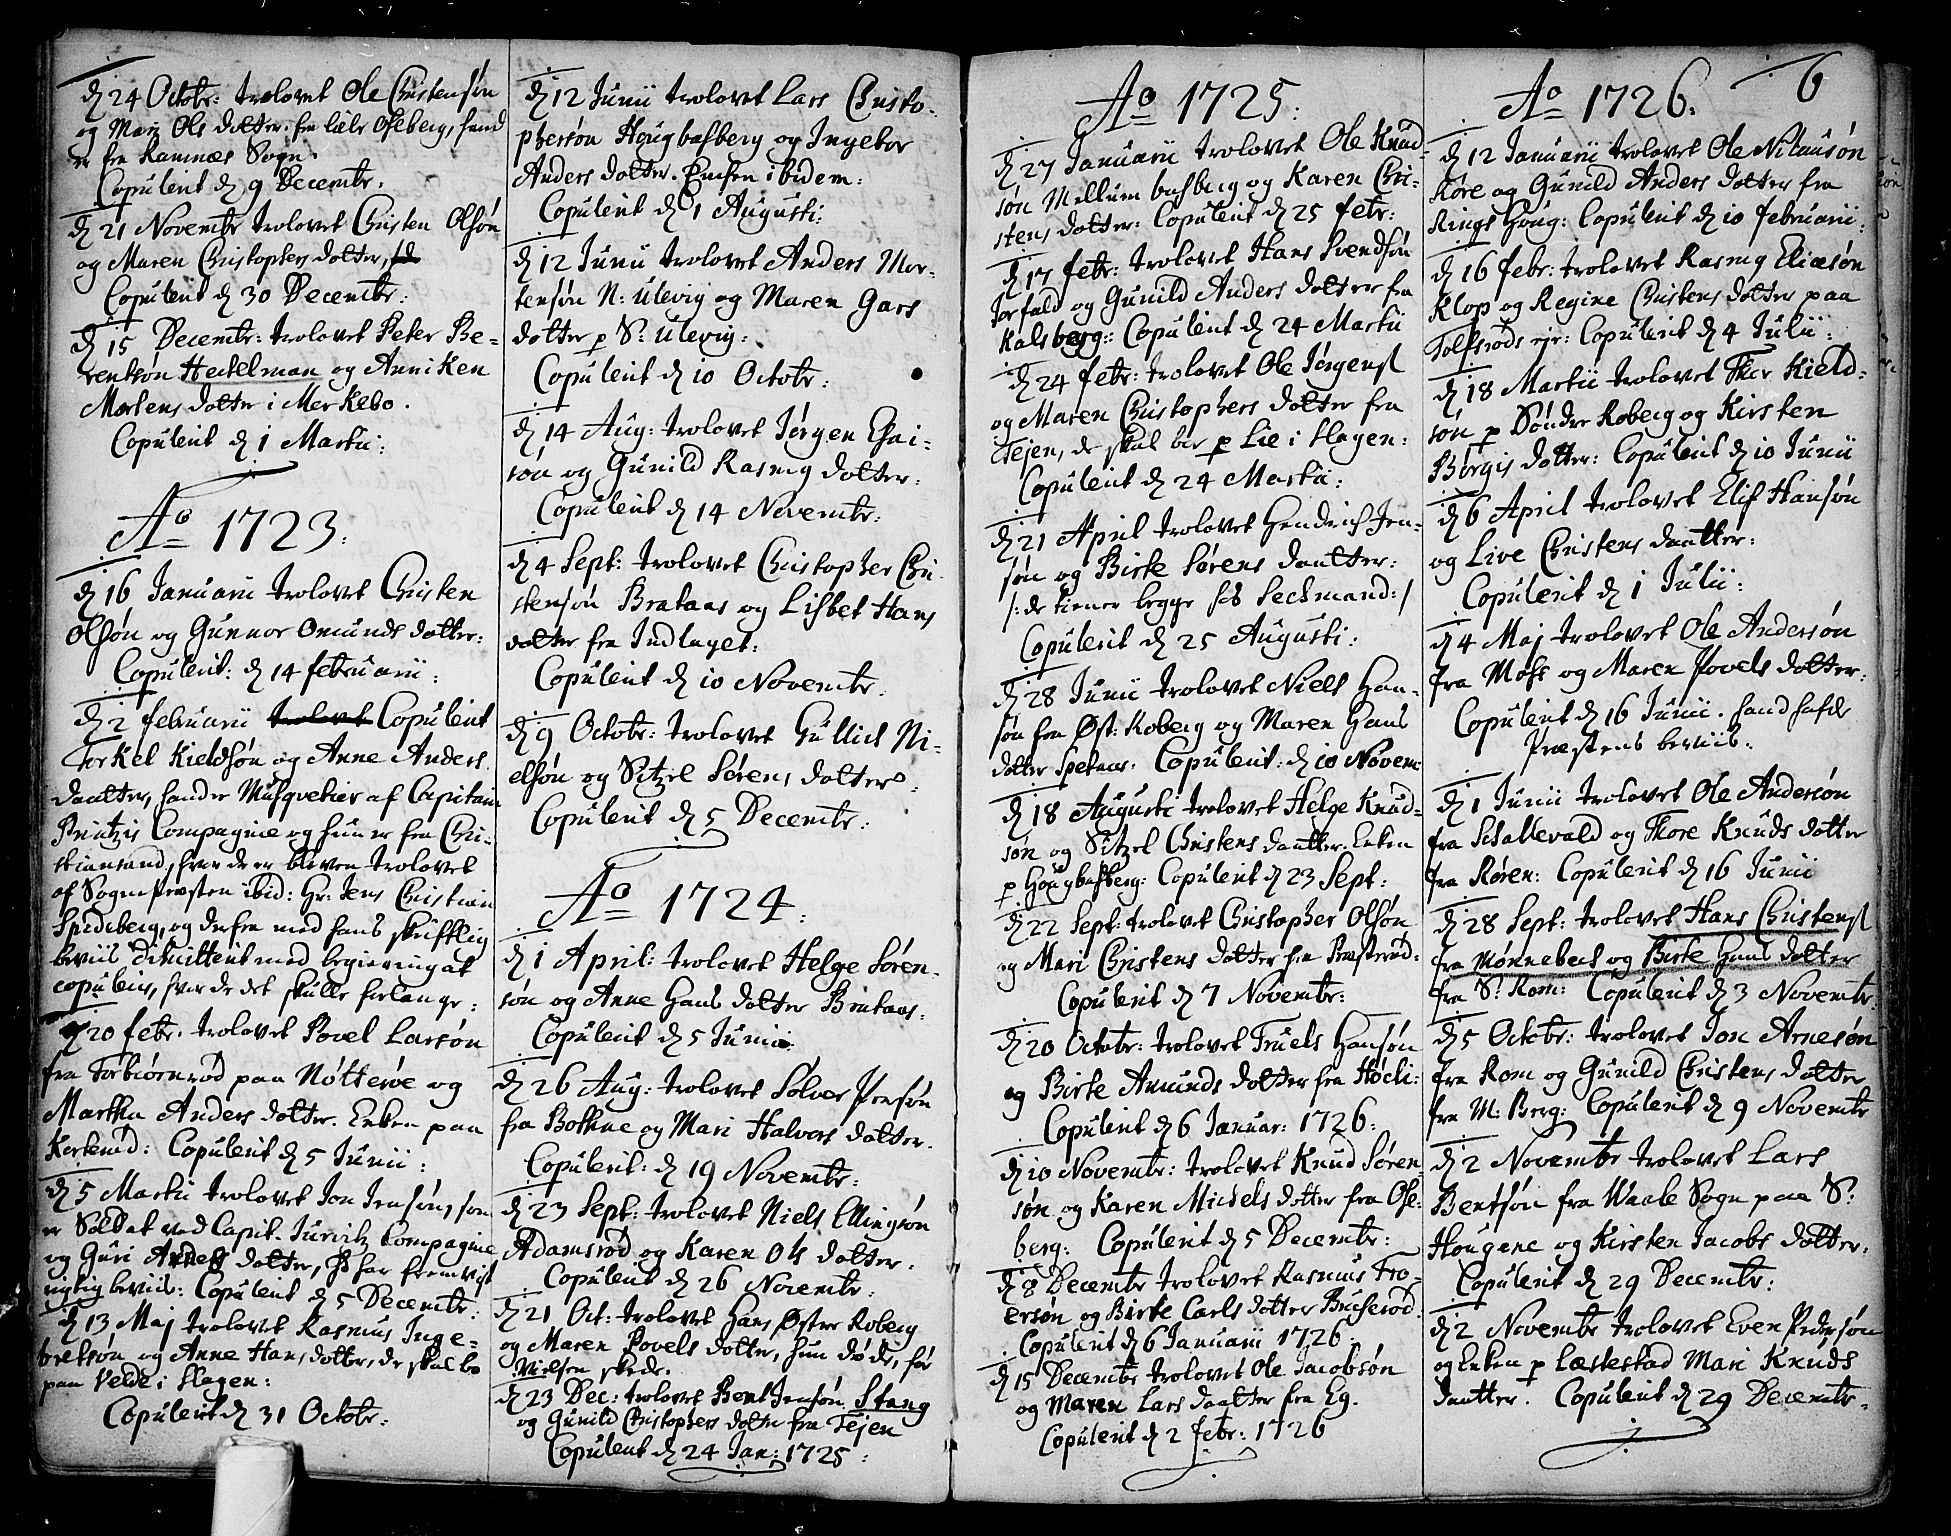 d 24 Octobr: trolovet Ole Christensøn
og Mari Ols dotter. fra lille Aasberg, hand
er fra Ramnæs Sogn.
Copulerit d 9 Decembr.
d 21 Novembr trolovet Christen Olsøn
og Maren Christophers dotter,
Copulerit d 30 Decembr:
d 15 Decembr: trolovet Peter Be-
rentsøn Heckelman og Anniken
Mortens dotter i Merkebo.
Copulerit d 1 Martii:
Ao 1723:
d 16 Januarii trolovet Christen
Olsøn og Gunnor Omunds dotter:
Copulerit: d 14 februarii:
d 2 februarii trolovet Copulerit
Torkel Kieldsøn og Anne Anders
daatter, hand er Musqvetier af Capitain
Compagnie og hun er fra Chri-
stiansand, hvor de er bleven trolovet
af Sognepræsten ibid: Hr: Jens Christian
Spidberg, og derfra med hans skrifftlig
beviis dimitterit med begiering at
copulers, hvor de det skulle forlange:
d 20 febr. trolovet Povel Larsøn
fra Torbiørnrød paa Nøtterøe og
Martha Anders dotter. Enken paa
Copulerit d 5 Junii:
d 5 Martii trolovet Jon Jensøn, som
er Soldat ved Capit. Compagnie
og Guri dotter, har fremvist
rigtig beviis: Copulerit d 5 Decembr:
d 13 Maj trolovet Rasmus Inge-
bretsøn og Anne Hans dotter, de skal bo
paa Velde i Slagen:
Copulerit d 31 Octobr:
d 12 Junii trolovet Lars Christo-
phersøn Hougbasberg og Ingebor
Anders dotter. Enken ibidem:
Copulerit d 1 Augusti:
d 12 Junii trolovet Anders Mor-
tensøn N: Ulevig og Maren Gars
dotter p S: Ulevig:
Copulerit d 10 Octobr:
d 14 Aug: trolovet Jørgen Esai-
søn og Gunild Rasmg dotter:
Copulerit d 14 Novembr:
d 4 Sept: trolovet Christopher Chri-
stensøn Brataas og Lisbet Hans
dotter fra Indlaget:
Copulerit d 10 Novembr:
d 9 Octobr: trolovet Gullich Ni-
elsøn og Sitzel Sørens dotter:
Copulerit d 5 Decembr:
Ao 1724:
d 1 April: trolovet Helge Søren-
søn og Anne Hans dotter Brataas:
Copulerit d 5 Junii:
d 26 Aug: trolovet Sølver
fra Bothne og Mari Halvors dotter.
Copulerit: d 19 Novembr:
d 23 Sept: trolovet Niels Ellingsøn
Adamsrød og Karen Ols dotter:
Copulerit d 26 Novembr:
d 21 Oct: trolovet Hans Østre Roberg
og Maren Povels dotter, hun døde, før
Vielsen skede.
d 23 Dec: trolovet Bent Jensøn Stang
og Gunild Christophers dotter fra Tejen
Copulerit d 24 Jan: 1725:
Ao 1725:
d 27 Januarii trolovet Ole Knud-
søn Mellum basberg og Karen Chri-
stens dotter: Copulerit d 25 febr:
d 17 febr: trolovet Hans Svendsøn
Jorfald og Gunild Anders dotter fra
Kalsberg: Copulerit d 24 Martii
d 24 febr: trolovet Ole Jørgens
og Maren Christophers dotter fra
Tejen, de skal boe p Lie i Slagen:
Copulerit d 24 Martii:
d 21 April trolovet Hendrich Jen-
søn og Birte Sørens daatter:
/: de tiener begge hos Sechmand:/
Copulerit d 25 Augusti:
d 28 Junii trolovet Niels Han-
søn fra Øst: Roberg og Maren Hans
dotter Spetaas. Copulerit: d 10 Novem:
d 18 Augusti trolovet Helge Knud-
søn og Sitzel Christens daatter. Enken
p Hougbasberg: Copulerit d 23 Sept:
d 22 Sept: trolovet Christopher Olsøn
og Mari Christens dotter fra Præsterød:
Copulerit d 7 Novembr:
d 20 Octobr: trolovet Truels Hansøn
og Birte Amunds dotter fra Høcli:
Copulerit d 6 Januar: 1726:
d 10 Novembr: trolovet Knud Søren-
søn og Karen Michels dotter fra Ose-
berg: Copulerit d 5 Decembr:
d 8 Decembr trolovet Rasmus Tro-
ersøn og Birte Carls dotter Bucherød:
Copulerit d 6 Januarii 1726:
d 15 Decembr trolovet Ole Jacobsøn
og Maren Lars daatter fra Eg.
Copulerit d 2 febr: 1726
6
Ao 1726:
d 12 Januarii trolovet Ole Nilausøn
Røre og Gunild Anders dotter fra
Rings Houg: Copulerit d 10 februarii:
d 16 febr: trolovet Rasmg Eliæsøn
Klop og Regine Christens dotter paa
Tolfsrøds eje: Copulerit d 4 Julii:
d 18 Martii trolovet Thor Kield-
søn p Søndre Roberg og Kirsten
Børgis dotter: Copulerit d 10 Junii
d 6 April trolovet Elif Hansøn
og Live Christens daatter:
Copulerit d 1 Julii:
d 4 Maj trolovet Ole Andersøn
fra Moss og Maren Povels dotter:
Copulerit d 16 Junii. hand hafde
Præstens beviis.
d 1 Junii trolovet Ole Andersøn
fra Schallevald og Thore Knuds dotter
fra Røren: Copulerit d 16 Junii
d 28 Sept: trolovet Hans Christens
fra Mønnebech og Birte Hans dotter
fra S: Rom: Copulerit d 3 Novembr
d 5 Octobr: trolovet Jon Arnesøn
fra Rom og Gunild Christens dotter
fra M: Berg: Copulerit d 9 Novembr
d 2 Novembr trolovet Lars
Bentsøn fra Waale Sogn paa S:
Hougene og Kirsten Jacobs dotter:
Copulerit d 29 Decembr:
d 2 Novembr trolovet Even Pedersøn
og Enken p Læstestad Mari Knuds
daatter. Copulerit d 29 Decembr.